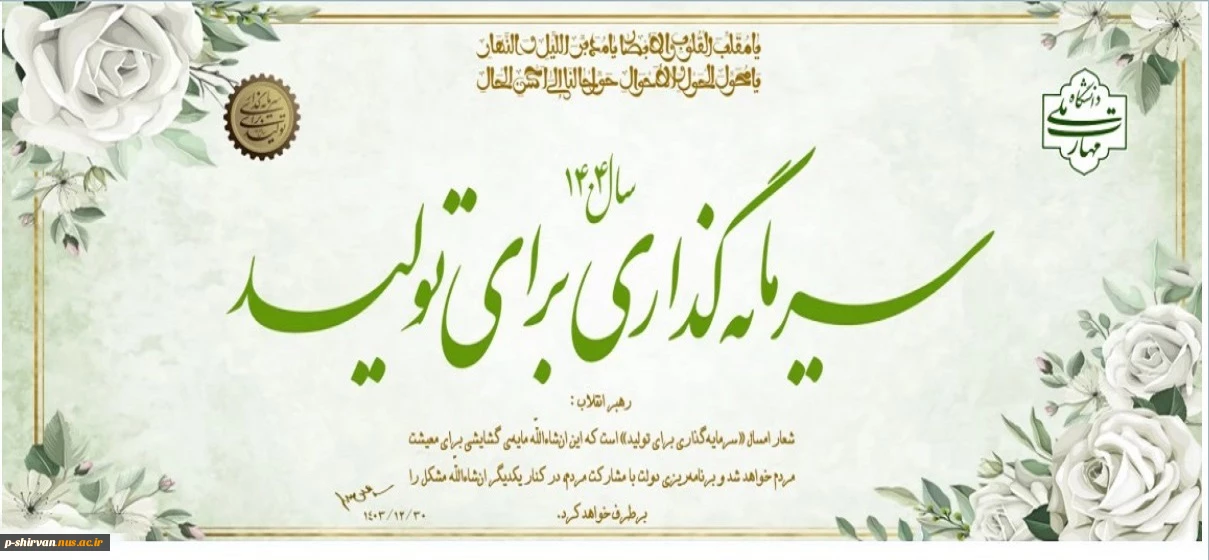 یا مقلب القلوب و الابصار یا مدبر اللیل و النهار
یا محول الحول و الاحوال حول حالنا الی احسن الحال
سرمایه‌گذاری
برای
تولید
دانشگاه
ملی
مهارت
سال ۱۴۰۴
سرمایه گذاری برای تولید
رهبر انقلاب :
شعار امسال «سرمایه‌گذاری برای تولید» است که این ان‌شاءالله مایه‌ی گشایشی برای معیشت
مردم خواهد شد و برنامه‌ریزی دولت با مشارکت مردم، در کنار یکدیگر ان‌شاءالله مشکل را
برطرف خواهد کرد.
۱۴۰۳/۱۲/۳۰
p-shirvan.nus.ac.ir